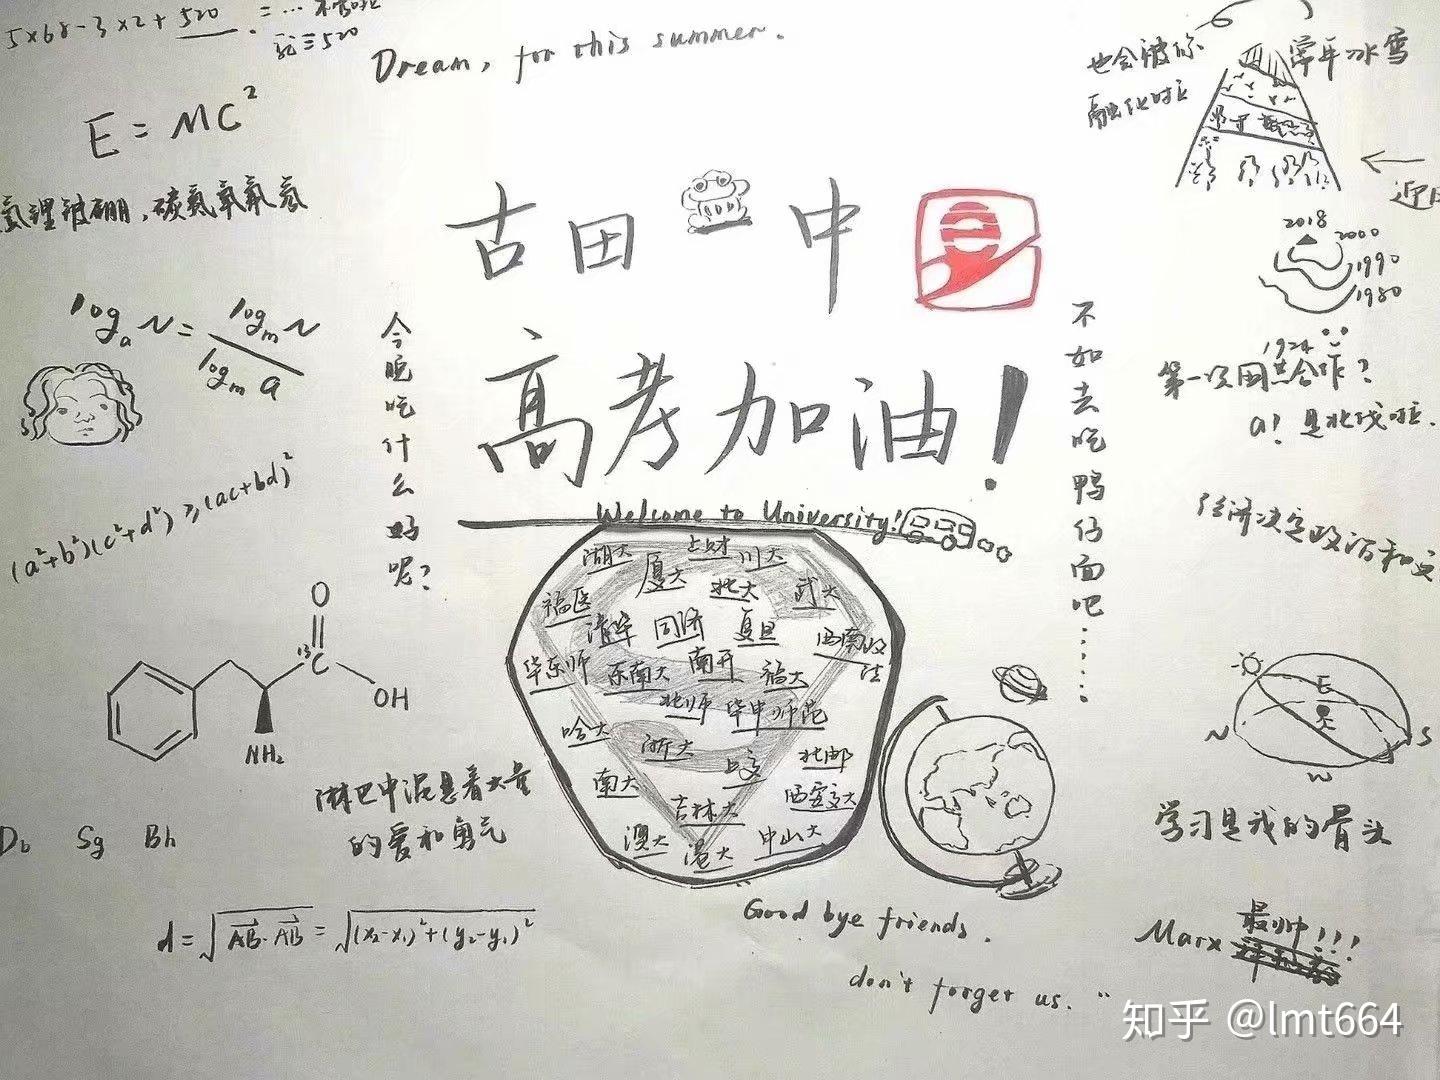 5×68-3×2+520
=…
Dream, for this summer.
E=MC²
硼,碳氮氧氟氖
古田一中
高考加油!
也会被你
融化时
常年冰雪
2018
2000
1990
1980
log_a N = log_m N / log_m a
今晚吃什么好呢?
不如去吃鸭仔面吧……
1924
第一次国共合作?
a! 是北伐啦.
(a²+b²)(c²+d²)≥(ac+bd)²
经济决定政治和文
Welcome to University!
湖大 上财 川大
厦大 北大 武大
福医
清华 同济 复旦
西南政法
华东师 东南大 南开 福大
北师 华中师范
哈大 浙大 上交 北邮
南大 吉林大 西安交大
澳大 港大 中山大
O
¹³C
OH
NH₂
淋巴中混悬着大量
的爱和勇气
Db Sg Bh
d=√(AB·AB)=√((x₂-x₁)²+(y₂-y₁)²)
E
N
S
W
学习是我的骨头
Marx 最帅!!!
Good bye friends.
don't forget us.
知乎 @lmt664